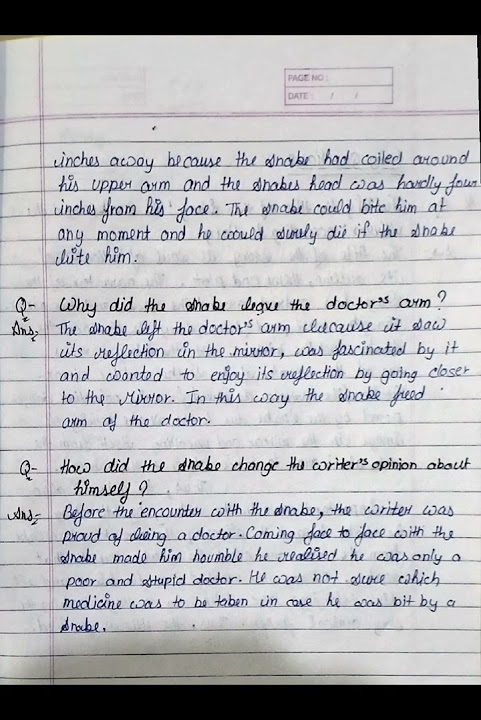 PAGE NO :
DATE : / /
inches away because the snake had coiled around
his upper arm and the snakes head was hardly four
inches from his face. The snake could bite him at
any moment and he would surely die if the snake
bite him.
Q- Why did the snake leave the doctor's arm?
Ans- The snake left the doctor's arm because it saw
its reflection in the mirror, was fascinated by it
and wanted to enjoy its reflection by going closer
to the mirror. In this way the snake freed
arm of the doctor.
Q- How did the snake change the writer's opinion about
himself?
Ans- Before the encounter with the snake, the writer was
proud of being a doctor. Coming face to face with the
snake made him houmble he realised he was only a
poor and stupid doctor. He was not sure which
medicine was to be taken in case he was bit by a
snake.